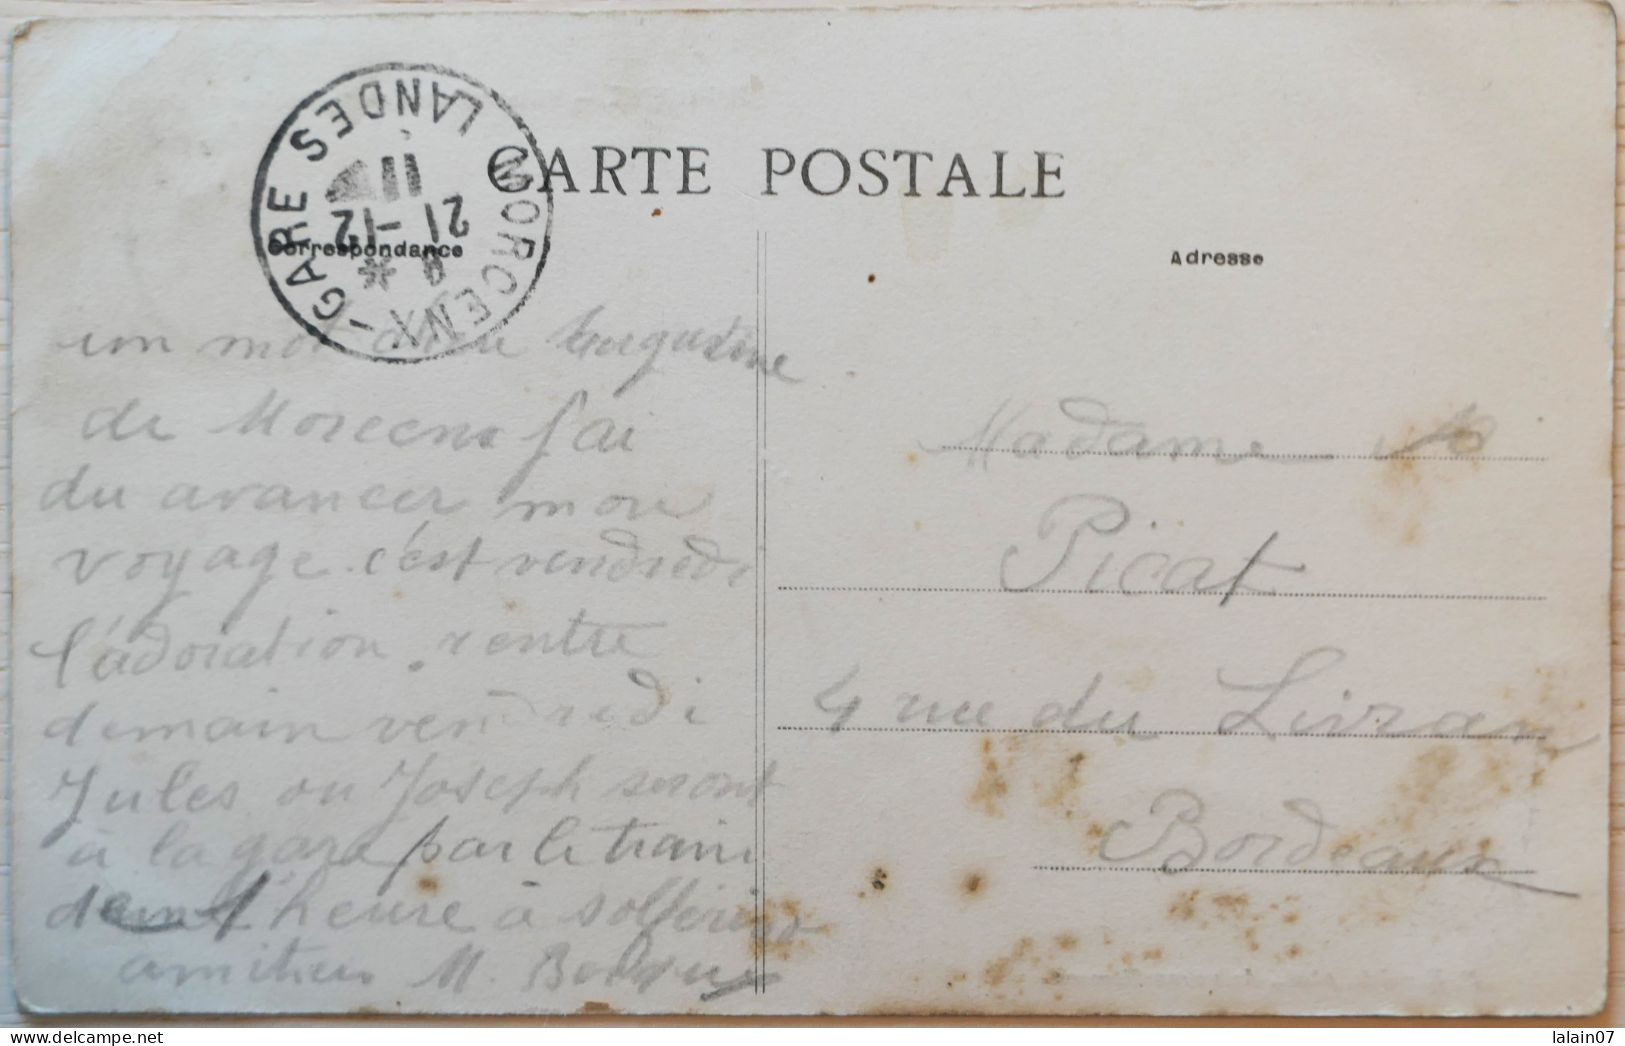 CARTE POSTALE
MORCENX-GARE LANDES
21-12
11
Correspondance
Adresse
un mot
de Morcenx J'ai
du avancer mon
voyage. c'est vendredi
l'adoration. rentre
demain vendredi
Jules ou Joseph seront
à la gare par le train
heure à solferino
amities M.
Madame
Picat
4 rue du Livran
Bordeaux
lalain07